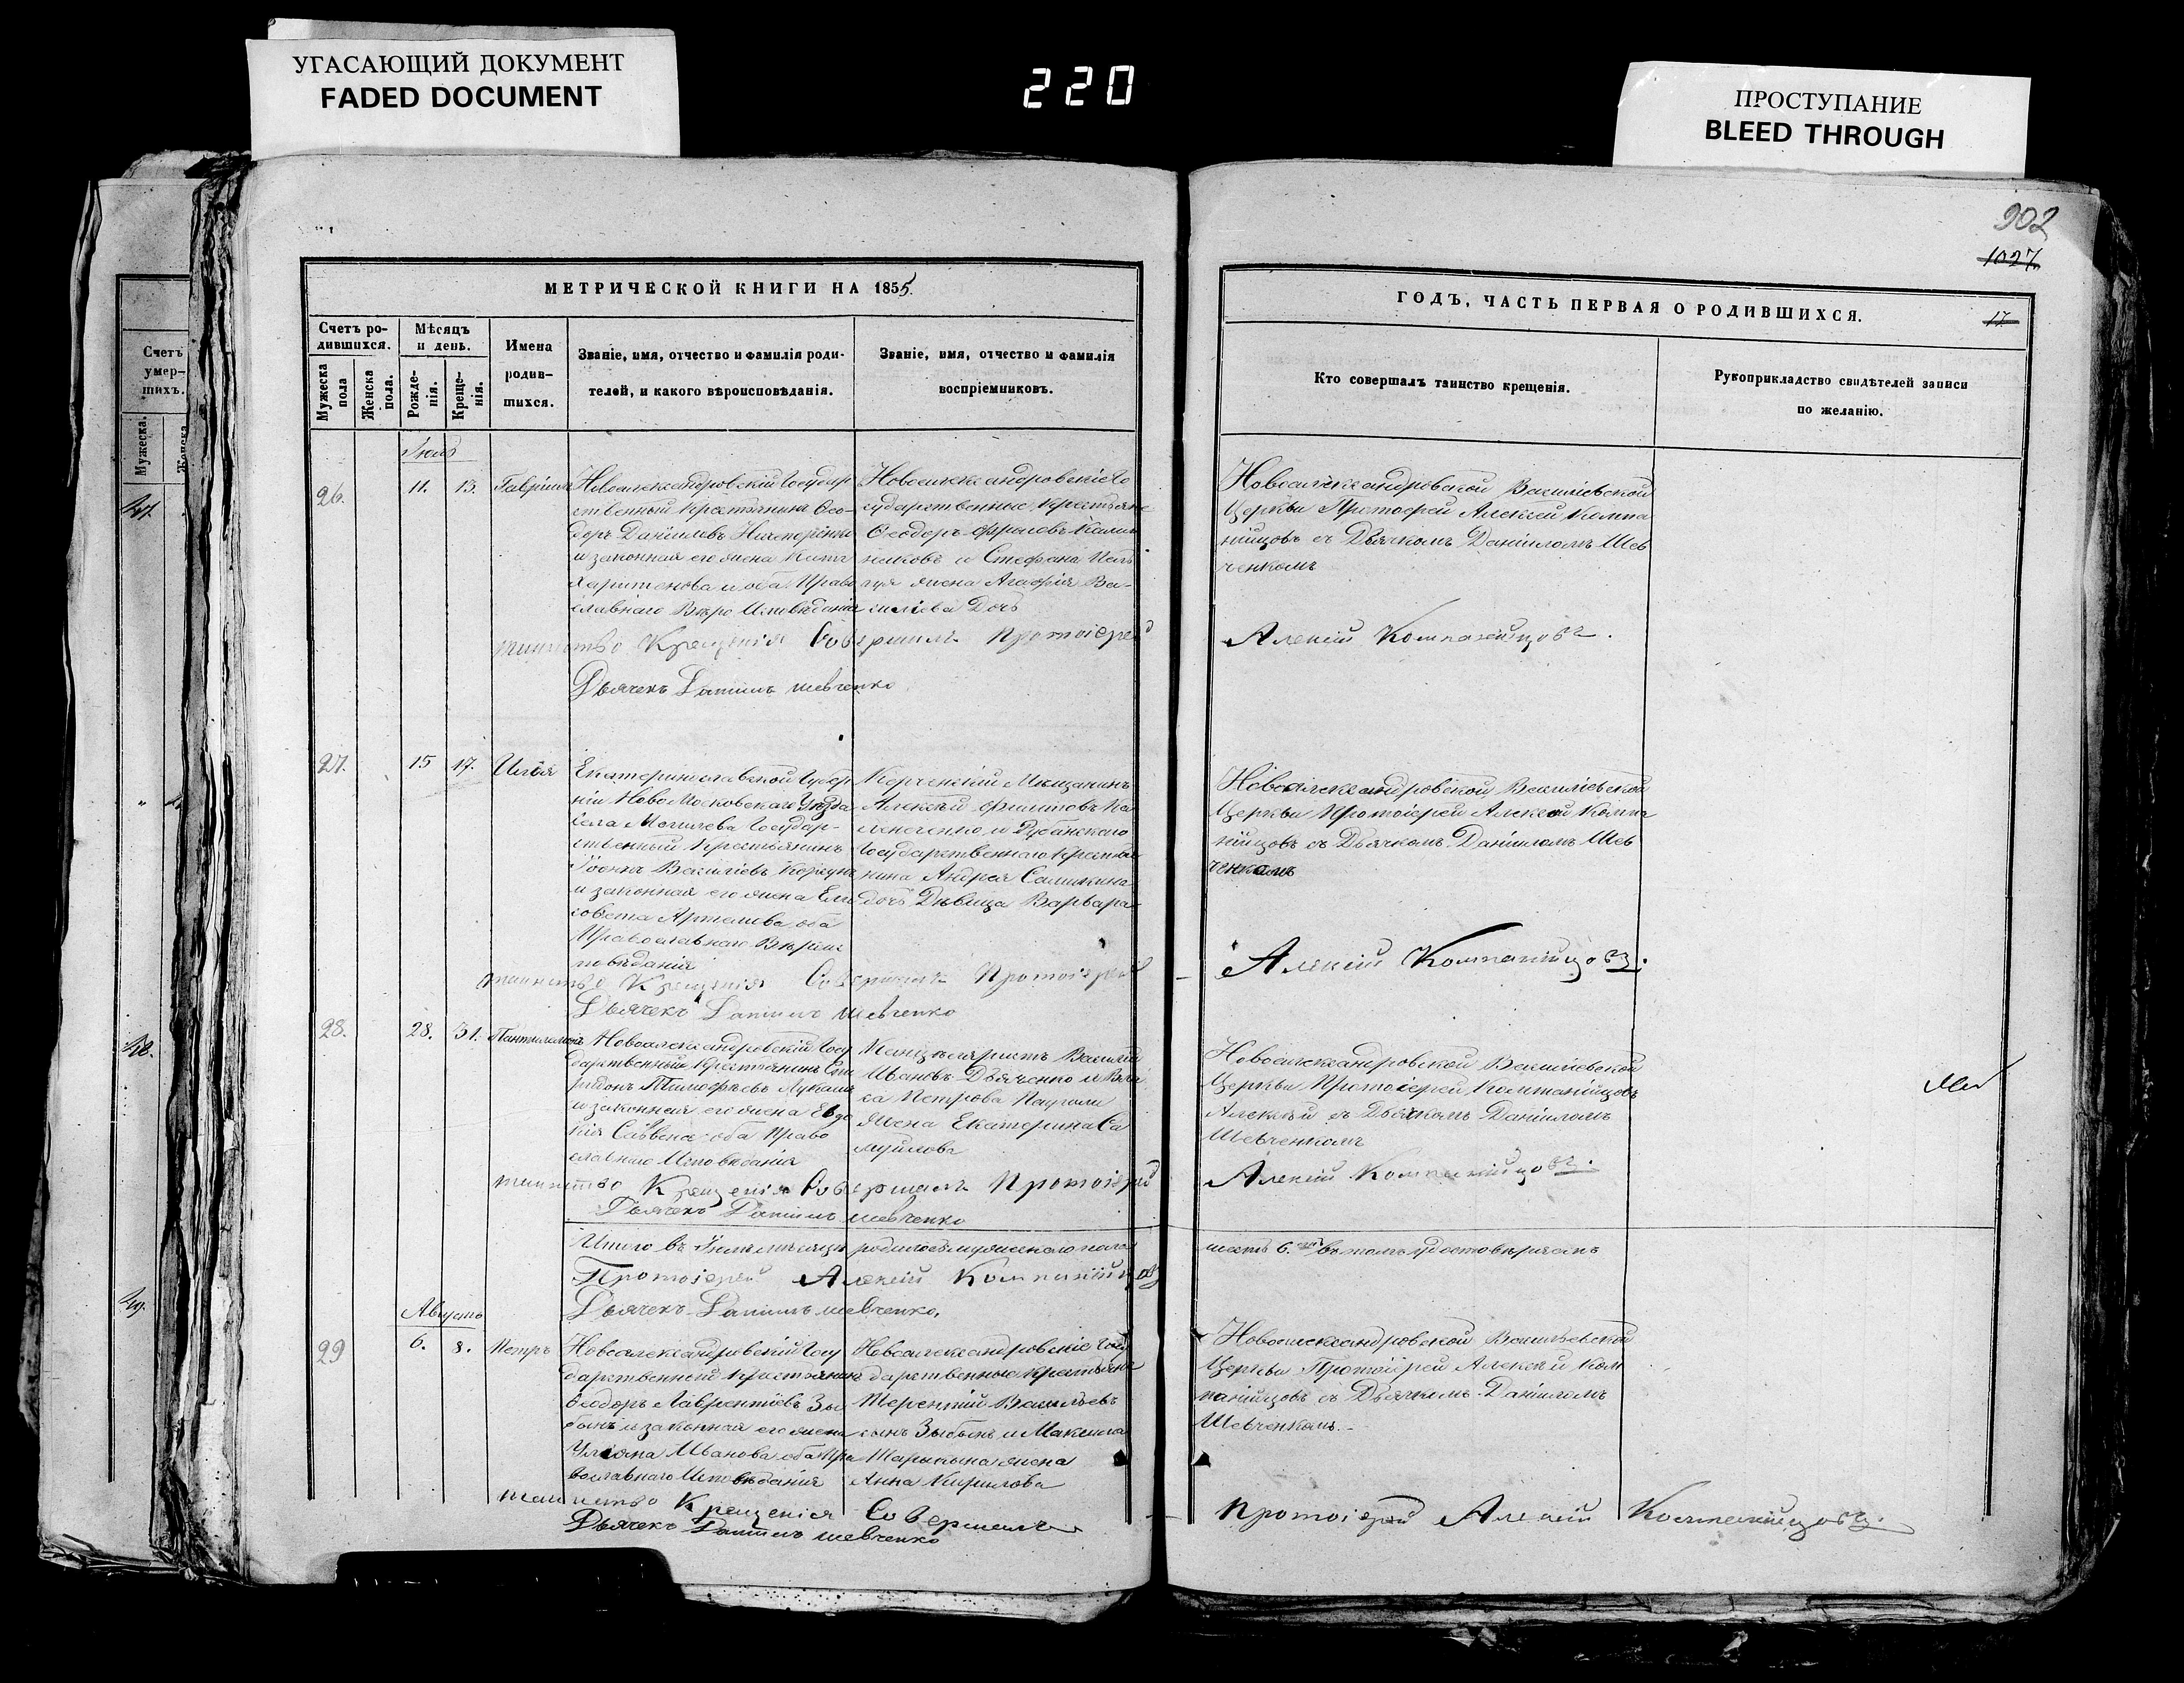 УГАСАЮЩИЙ ДОКУМЕНТ
FADED DOCUMENT
220
ПРОСТУПАНИЕ
BLEED THROUGH
902
1027
Счетъ
умер-
шихъ.
Мужеска.
Женска
47.
48.
49.
МЕТРИЧЕСКОЙ КНИГИ НА 1855.
Счетъ ро-
дившихся.
Мужеска
пола
Женска
пола.
Мѣсяцъ
и день.
Рожде-
нія.
Креще-
нія.
Имена
родив-
шихся.
Званіе, имя, отчество и фамилія роди-
телей, и какого вѣроисповѣданія.
Званіе, имя, отчество и фамилія
воспріемниковъ.
ГОДЪ, ЧАСТЬ ПЕРВАЯ О РОДИВШИХСЯ.
17
Кто совершалъ таинство крещенія.
Рукоприкладство свидѣтелей записи
по желанію.
Іюль
26.
11.
13.
Гавріилъ
Новоалександровскій Государ
ственный Крестьянинъ Ѳео-
доръ Даніиловъ
и законная его жена
Харитонова и оба Право
славнаго Вѣро Исповѣданія
Новоалександровскіе Го
сударственные Крестьяне
Ѳеодоръ Фроловъ
и Стефана
жена Агафія Ва-
силіева Дочь
Новоалександровской Василіевской
Церкви Протоіерей Алексей Компа
нійцовъ съ Дьячкомъ Даніиломъ Шев
ченкомъ
таинство Крещенія Совершилъ Протоіерей
Алексій Компанійцовъ.
Дьячекъ Даніилъ Шевченко
27.
15
17.
Илія
Екатеринославской Губер
ніи Ново Московскаго Уѣзда
села Государ-
ственный Крестьянинъ
Василіевъ
и законная его жена Ели
совета Артемова оба
Православнаго Вѣроис
повѣданія
Керченскій Мѣщанинъ
Алексѣй Филиповъ
и
Государственнаго Крестья
нина Андрея
дочь Дѣвица Варвара
Новоалександровской Василіевской
Церкви Протоіерей Алексей Компа
нійцовъ съ Дьячкомъ Даніиломъ Шев
ченкомъ
таинство Крещенія Совершилъ Протоіерей
Алексій Компанійцовъ.
Дьячекъ Даніилъ Шевченко
28.
28.
31.
Пантилемонъ
Новоалександровскій Госу
дарственный Крестьянинъ Спи
ридонъ Тимофѣевъ
и законная его жена Евдо
кія оба Право
славнаго Исповѣданія
Канцеляристъ Василій
Ивановъ Дьяченко и
Петрова
жена Екатерина Са
муйлова
Новоалександровской Василіевской
Церкви Протоіерей Компанійцовъ
Алексѣй съ Дьячкомъ Даніиломъ
Шевченкомъ
таинство Крещенія Совершилъ Протоіерей
Алексій Компанійцовъ.
Дьячекъ Даніилъ Шевченко
Итого въ Іюлѣ мѣсяцѣ родилось мужескаго пола
шесть 6. въ томъ удостовѣряемъ
Протоіерей Алексій Компанійцовъ
Дьячекъ Даніилъ Шевченко,
Августъ
29
6.
8.
Петръ
Новоалександровскій Госу
дарственный Крестьянинъ
Ѳеодоръ Лаврентіевъ
и законная его жена
Уліяна Иванова оба Пра
вославнаго Исповѣданія
Новоалександровскіе Госу
дарственные Крестьяне
Терентій Васильевъ
сынъ и Максима
жена
Анна Кирилова
Новоалександровской Васильевской
Церкви Протоіерей Алексѣй Ком
панійцовъ съ Дьячкомъ Даніиломъ
Шевченкомъ.
таинство Крещенія Совершилъ
Протоіерей Алексій Компанійцовъ.
Дьячекъ Даніилъ Шевченко